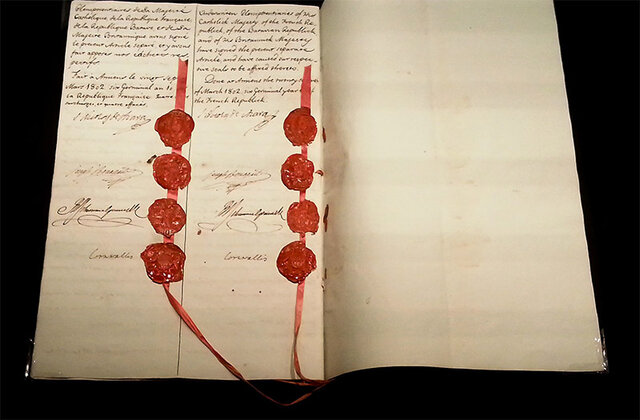 Plenipotentiaires de Sa Majesté
Catholique de la République Française
de la République Batave et de Sa
Majesté Britannique avons signé
le présent Article séparé, et y avons
fait apposer nos cachets
Fait à Amiens le vingt sept
Mars 1802. six Germinal an 10
la République Française
et quatre
Joseph Bonaparte
R J Schimmelpenninck
Cornwallis
Undersigned Plenipotentiaries of His
Catholick Majesty of the French Re
publick of the Batavian Republick
and of His Britannick Majesty
have signed the present separate
Article and have caused our respec
tive seals to be affixed thereto.
Done at Amiens the twenty
of March 1802. six Germinal year
the French Republick.
Joseph Bonaparte
R J Schimmelpenninck
Cornwallis